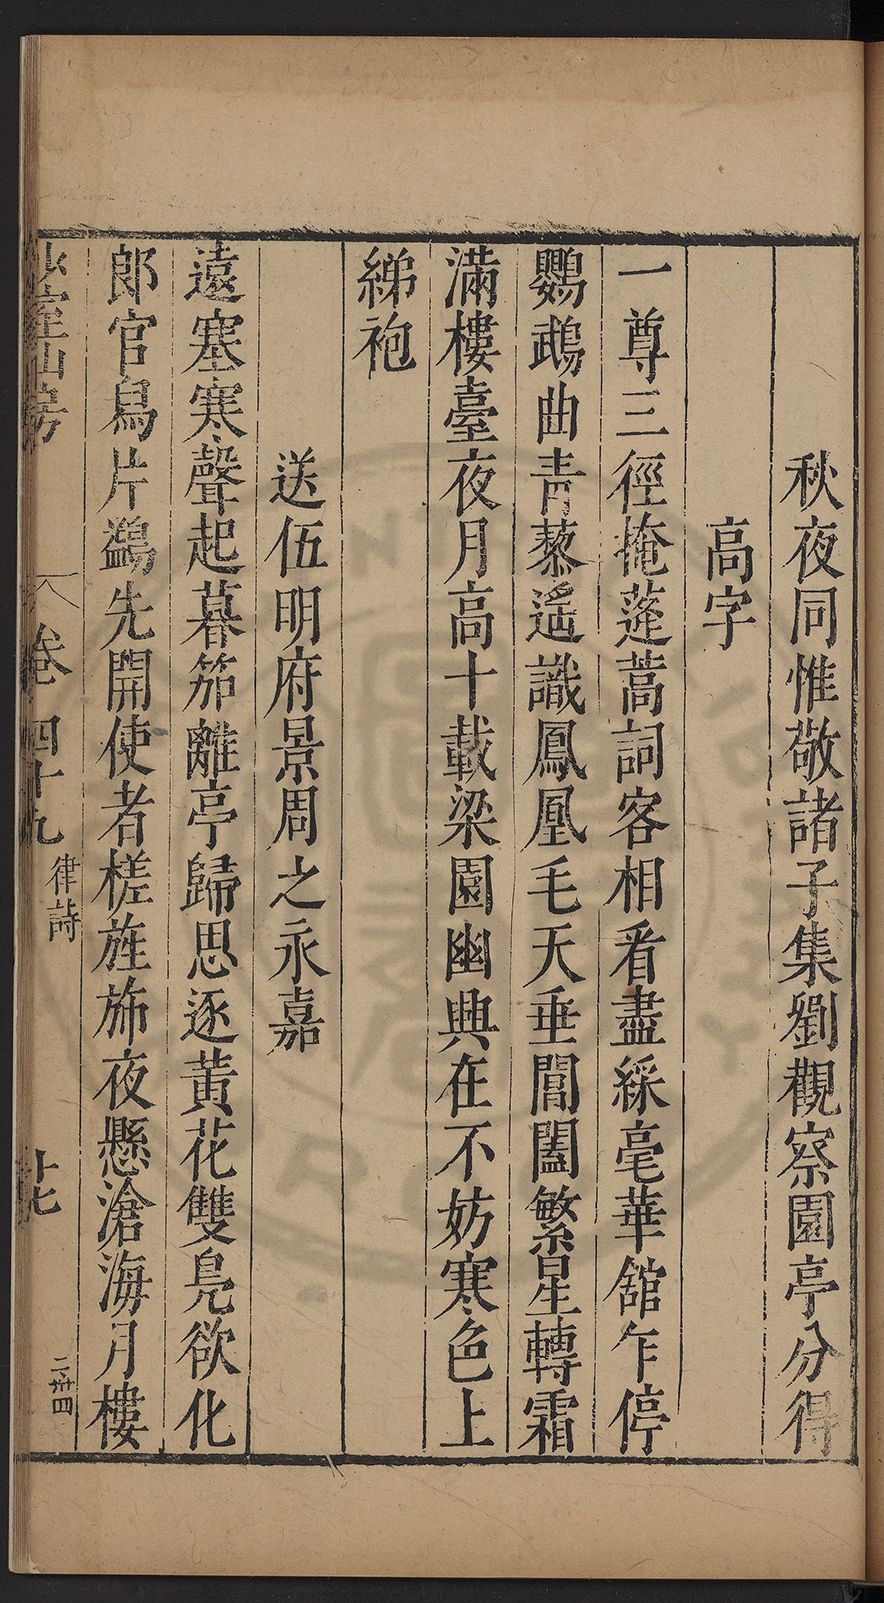 秋夜同惟敬諸子集劉觀察園亭分得
高字
一尊三徑掩蓬蒿詞客相看盡綵毫華舘乍停
鸚鵡曲青藜遥識鳳凰毛天垂閶闔繁星轉霜
滿樓臺夜月高十載梁園幽興在不妨寒色上
綈袍
送伍明府景周之永嘉
遠塞寒聲起暮笳離亭歸思逐黃花雙鳧欲化
郎官舄片鷁先開使者槎旌斾夜懸滄海月樓
少室山房
卷四十九
律詩
廿七